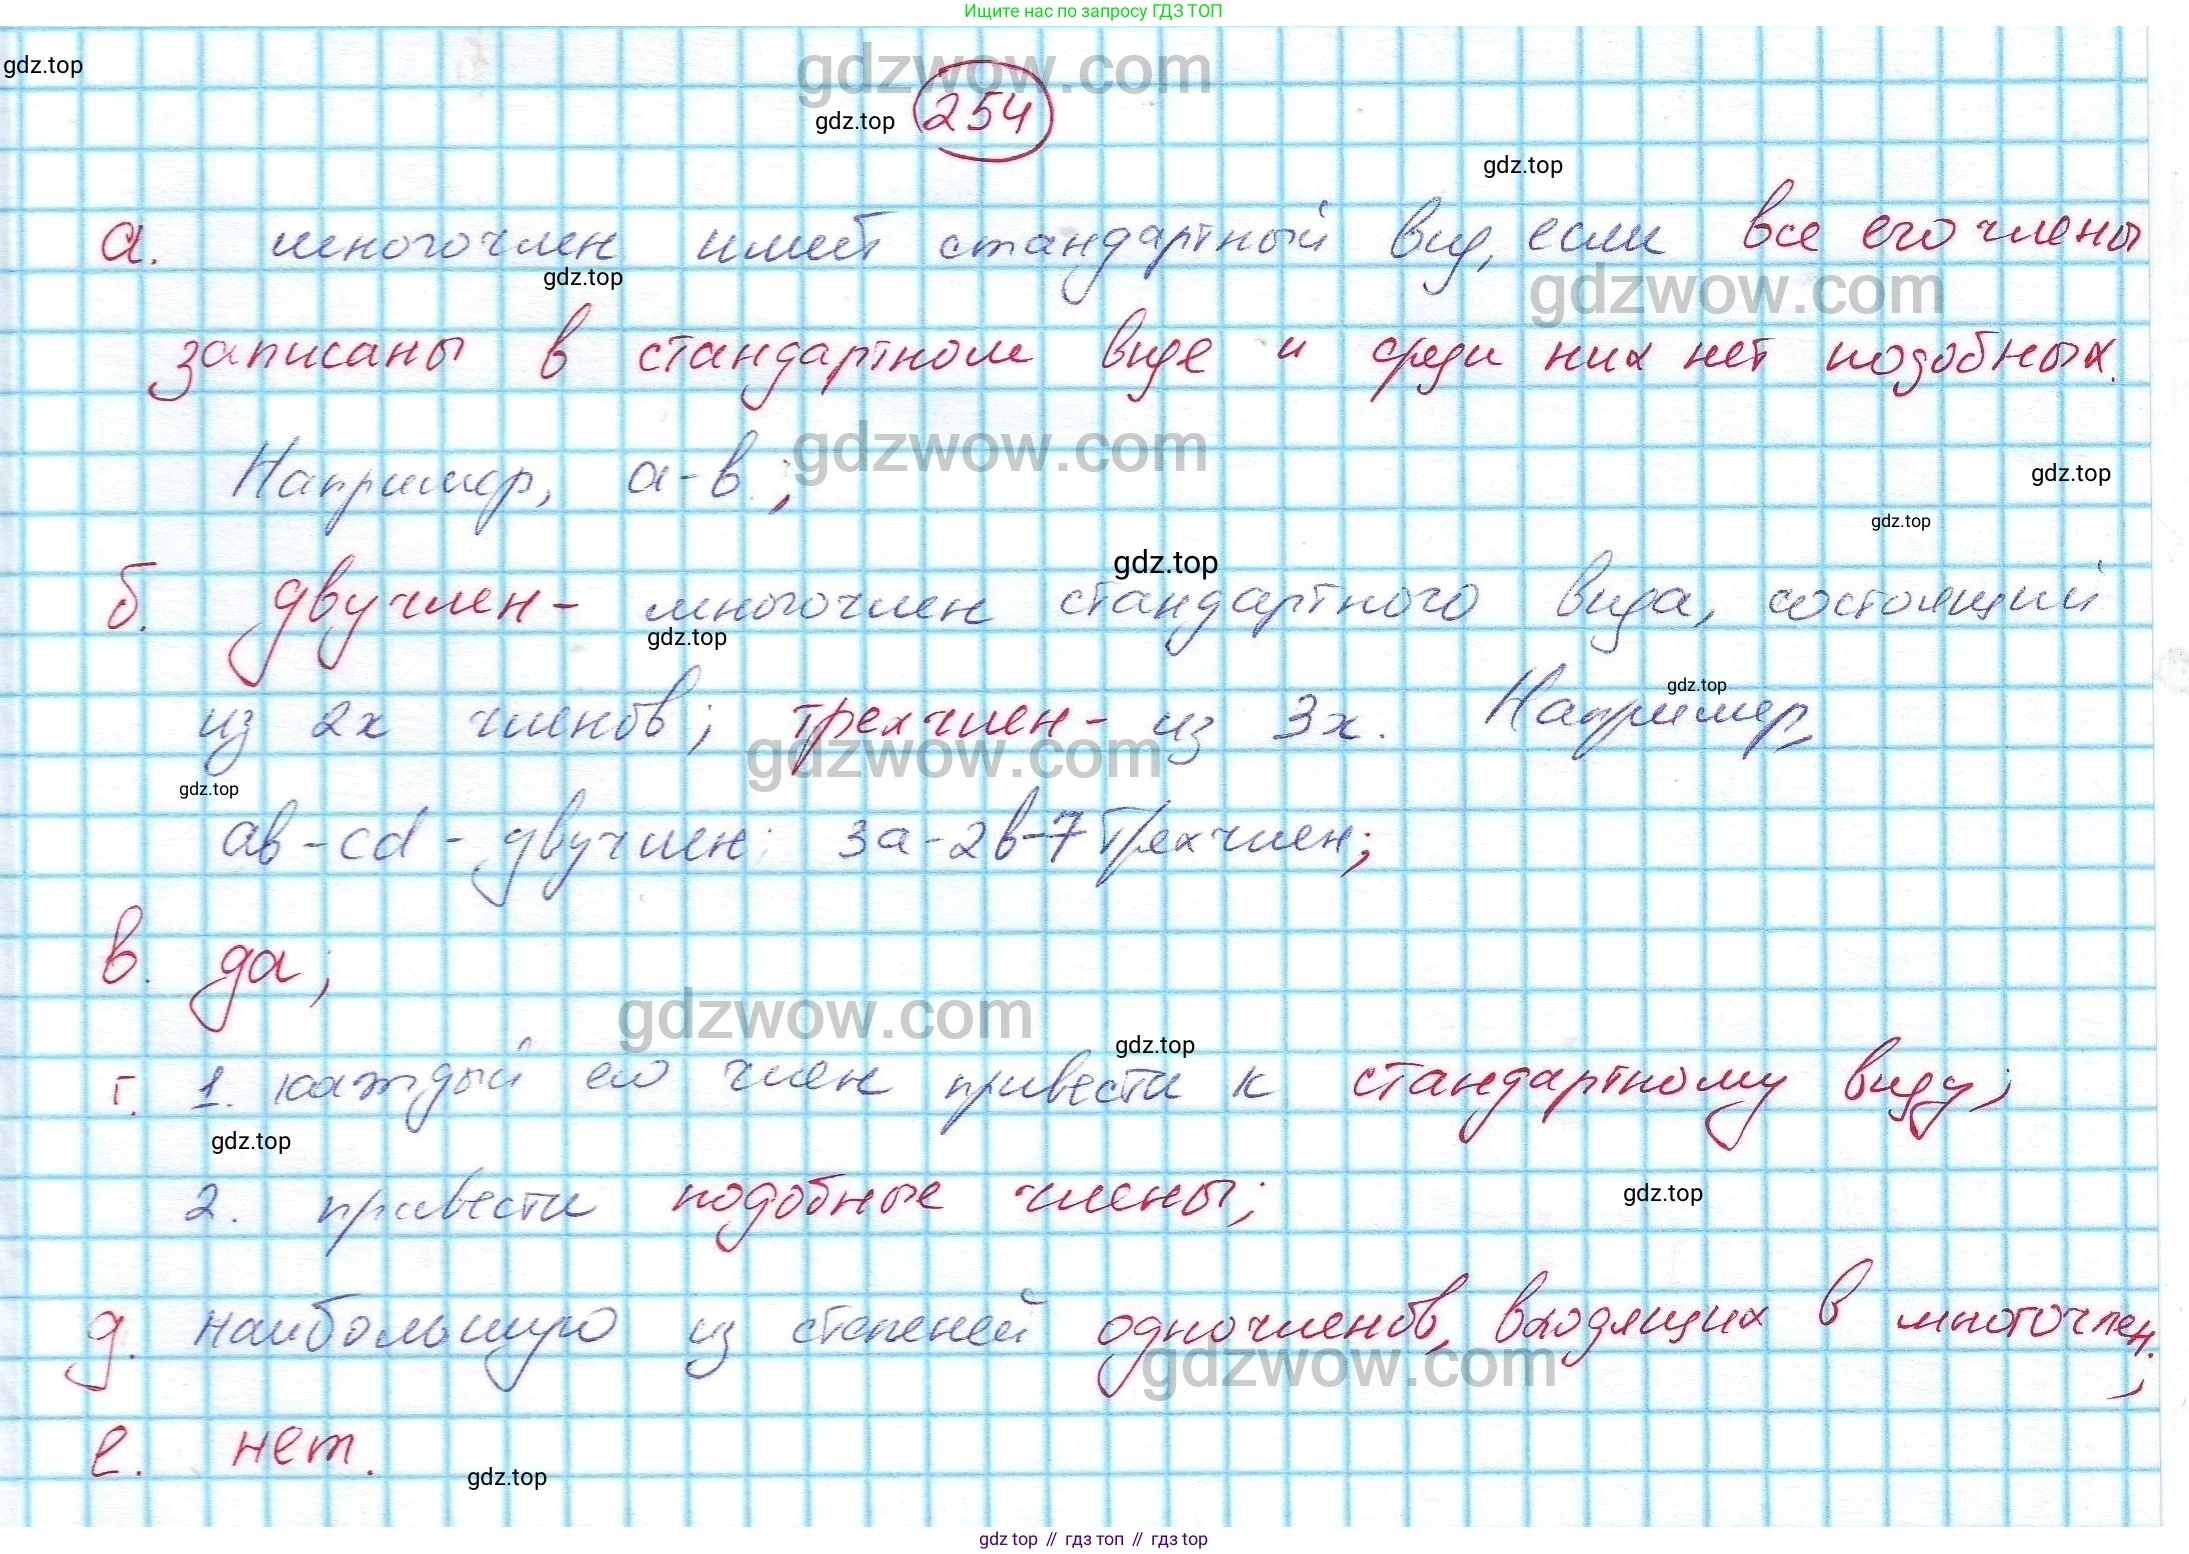 Ищите нас по запросу ГДЗ ТОП
gdzwow.com
gdz.top
gdz.top
254
gdz.top
а. многочлен имеет стандартный вид, если все его члены
gdz.top
gdzwow.com
записаны в стандартном виде и среди них нет подобных.
gdzwow.com
Например, а-в;
gdz.top
gdz.top
gdz.top
б. двучлен- многочлен стандартного вида, состоящий
gdz.top
gdz.top
из 2х членов; трехчлен- из 3х. Например,
gdzwow.com
gdz.top
ав-cd - двучлен; 3а-2в-7 трехчлен;
в. да;
gdzwow.com
gdz.top
г. 1. каждый его член привести к стандартному виду;
gdz.top
2. привести подобные члены;
gdz.top
д. наибольшую из степеней одночленов, входящих в многочлен.;
gdzwow.com
е. нет.
gdz.top
gdz.top // гдз топ // гдз top